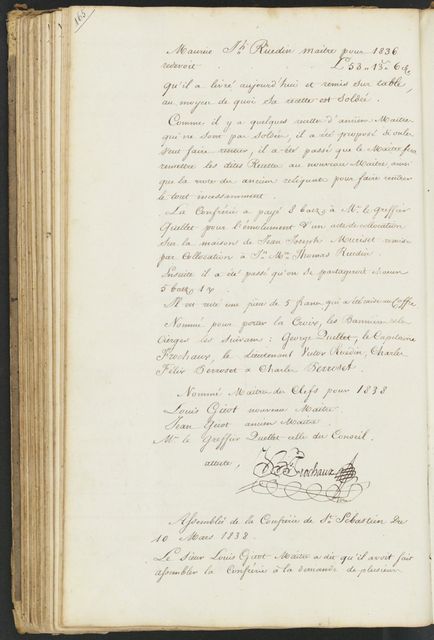 165
Maurice Jh. Ruedin maitre pour 1836
redevoit . . . L 53 " 13 " 6
qu'il a livré aujourd'hui et remis sur table,
au moyen de quoi sa recette est soldée.
Comme il y a quelques recettes d'ancien Maitre
qui ne sont pas soldées, il a été proposé si on les
veut faire rentrer, il a été passé que le Maitre fera
remettre les dites Recettes au nouveau Maitre, ainsi
que la note des anciens religuats pour faire rentrer
le tout incessamment.
La Confrérie a payé 8 batz à Mr. le greffier
Quellet pour l'émolument d'un acte de collocation
sur la maison de Jean Joseph Muriset remise
par Collocation à Sr. Mre. Thomas Ruedin.
Ensuite il a été passé qu'on se partageroit chacun
5 batz
Il est resté une pièce de 5 francs qui a été mise au Coffre
Nommé pour porter la Croix, les Bannières et les
Cierges les suivans : George Quellet, le Capitaine
Frochaux, le Lieutenant Victor Ruedin, Charles
Félix Perroset & Charles Perroset.
Nommé Maitre des Clefs pour 1838
Louis Girot nouveau Maitre
Jean Girot ancien Maitre
Mr. le Greffier Quellet celle du Conseil.
atteste,
Frochaux
Assemblée de la Confrérie de St. Sébastien du
10 Mars 1838.
Le Sieur Louis Girot Maitre a dit qu'il avoit fait
assembler la Confrérie à la demande de plusieurs